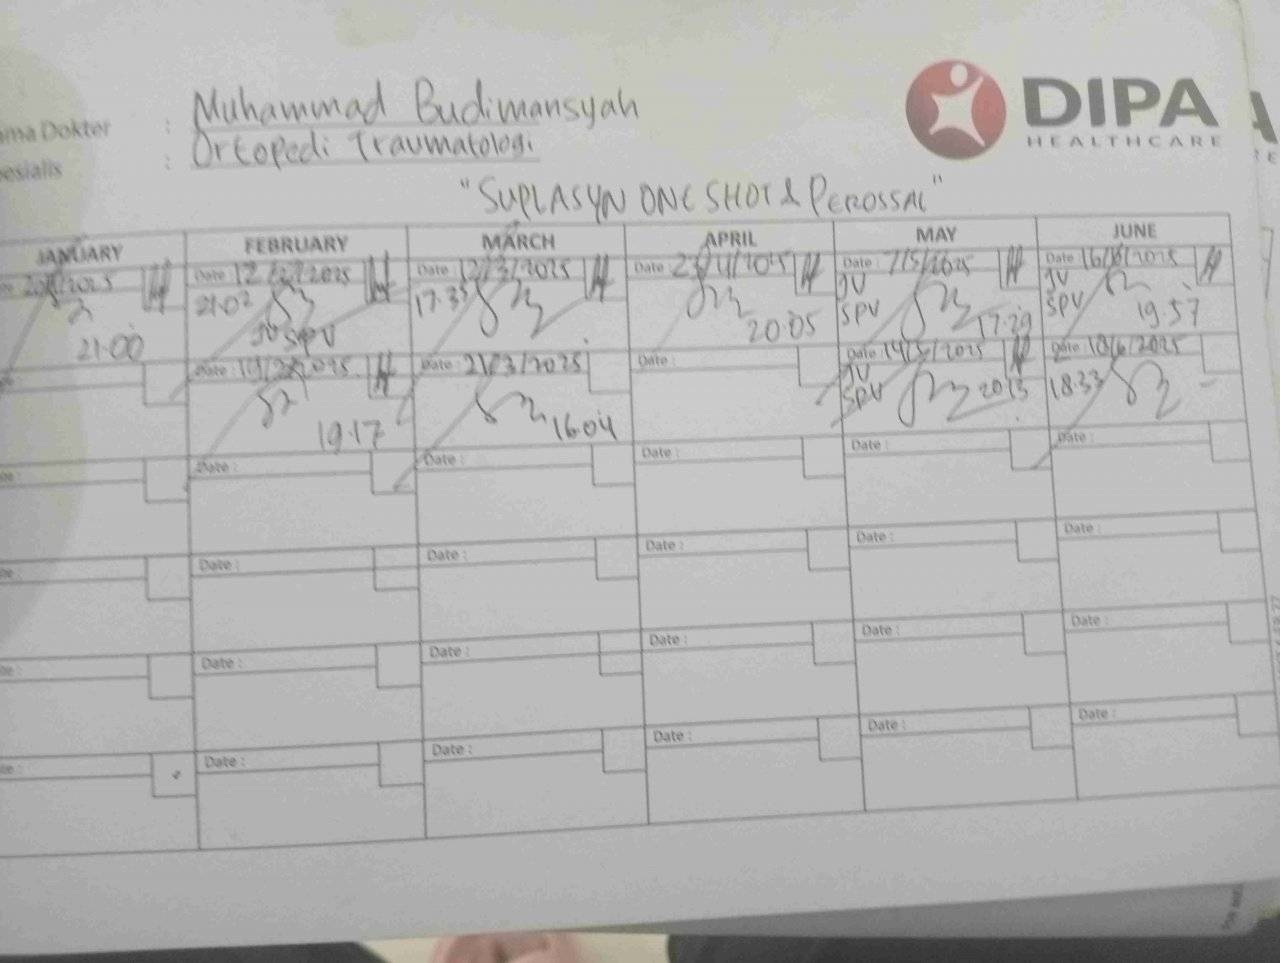 Muhammad Budimansyah
ma Dokter :
Ortopedi Traumatologi
esialis :
DIPA
HEALTHCARE
"SUPLASYN ONE SHOT & PEROSSAL"
JANUARY FEBRUARY MARCH APRIL MAY JUNE
Date : 12/2/2025 Date : 12/3/2025 Date : Date : 7/5/2025 Date : 16/6/2025
21.02 17.35 JV JV
SPV SPV
21.00 JV SPV 20.05 17.29 19.57
Date : Date : 21/3/2025 Date : Date : 14/5/2025 Date : 18/6/2025
JV
SPV 20.13 18.33
19.17 16.04
Date : Date : Date : Date : Date :
Date : Date : Date : Date : Date :
Date : Date : Date : Date : Date :
Date : Date : Date : Date : Date :